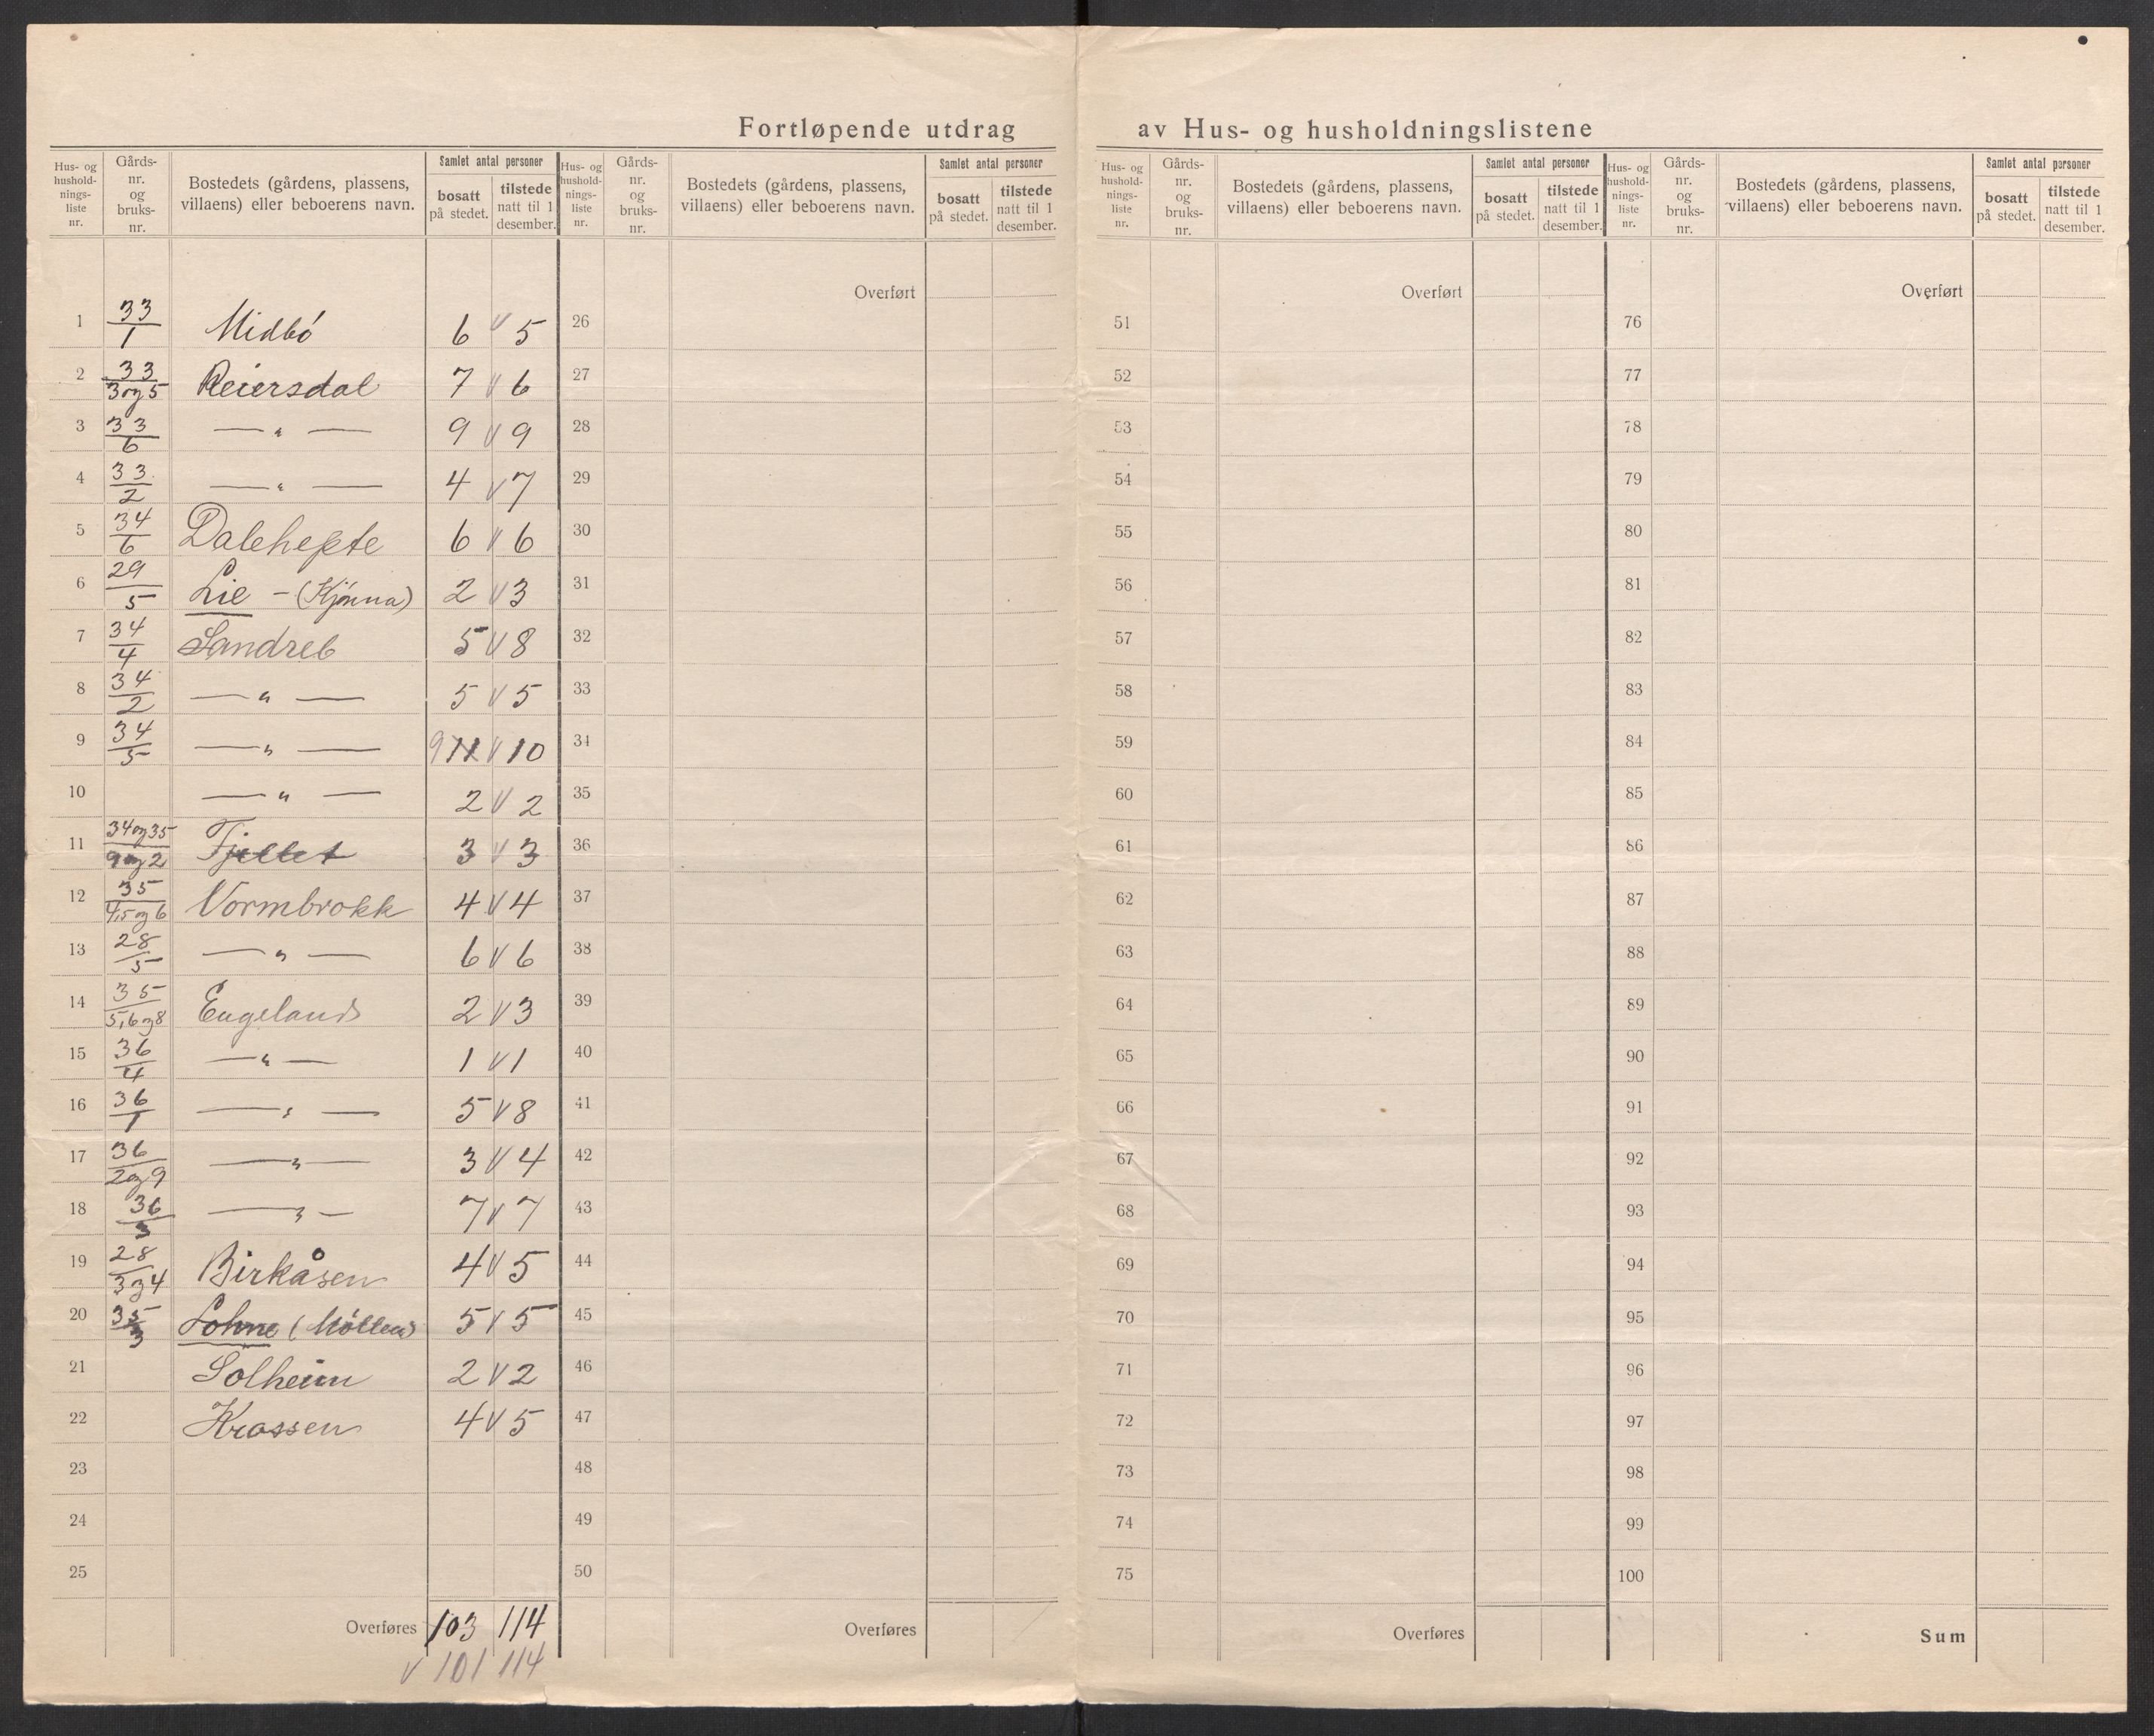 Fortløpende utdrag av Hus- og husholdningslistene
Hus- og hushold-nings-liste nr. | Gårds-nr. og bruks-nr. | Bostedets (gårdens, plassens, villaens) eller beboerens navn. | Samlet antal personer | bosatt på stedet. | tilstede natt til 1 desember.
Hus- og hushold-nings-liste nr. | Gårds-nr. og bruks-nr. | Bostedets (gårdens, plassens, villaens) eller beboerens navn. | Samlet antal personer | bosatt på stedet. | tilstede natt til 1 desember.
Hus- og hushold-nings-liste nr. | Gårds-nr. og bruks-nr. | Bostedets (gårdens, plassens, villaens) eller beboerens navn. | Samlet antal personer | bosatt på stedet. | tilstede natt til 1 desember.
Hus- og hushold-nings-liste nr. | Gårds-nr. og bruks-nr. | Bostedets (gårdens, plassens, villaens) eller beboerens navn. | Samlet antal personer | bosatt på stedet. | tilstede natt til 1 desember.
Overført Overført Overført
1 33/1 Midbö 6 v 5 26 51 76
2 33/3 og 5 Reiersdal 7 v 6 27 52 77
3 33/6 — " — 9 v 9 28 53 78
4 33/2 — " — 4 v 7 29 54 79
5 34/6 Dalehefte 6 v 6 30 55 80
6 29/5 Lie - (Kjönna) 2 v 3 31 56 81
7 34/4 Sandreb 5 v 8 32 57 82
8 34/2 — " — 5 v 5 33 58 83
9 34/5 — " — 9 11 v 10 34 59 84
10 — " — 2 v 2 35 60 85
11 34 og 35/9 og 2 Fjellet 3 v 3 36 61 86
12 35/4,5 og 6 Vormbrokk 4 v 4 37 62 87
13 28/5 — " — 6 v 6 38 63 88
14 35/5,6 og 8 Engeland 2 v 3 39 64 89
15 36/4 — " — 1 v 1 40 65 90
16 36/1 — " — 5 v 8 41 66 91
17 36/2 og 9 — " — 3 v 4 42 67 92
18 36/3 — " — 7 v 7 43 68 93
19 28/3 og 4 Birkåsen 4 v 5 44 69 94
20 35/3 Lohne (Möllen) 5 v 5 45 70 95
21 Solheim 2 v 2 46 71 96
22 Krossen 4 v 5 47 72 97
23 48 73 98
24 49 74 99
25 50 75 100
Overføres 103 114 Overføres Overføres Sum
v 101 114